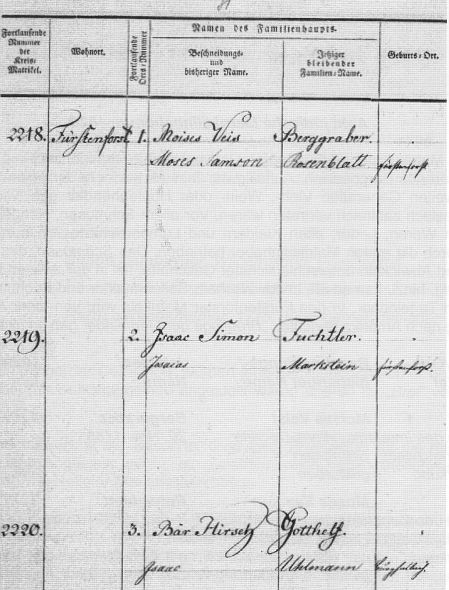 Namen des Familienhaupts.
Fortlaufende Nummer der Kreis-Matrikel.
Wohnort.
Fortlaufende Orts-Nummer
Beschneidungs- und bisheriger Name.
Jetziger bleibender Familien-Name.
Geburts-Ort.
2218. Fürstenforst 1. Moises Veis Berggraber.
Moses Samson Rosenblatt Fürstenforst
2219. 2. Isaac Simon Fuchtler.
Isaias Markstein Fürstenforst.
2220. 3. Bär Hirsch Gotthelf.
Isaac Uhlmann